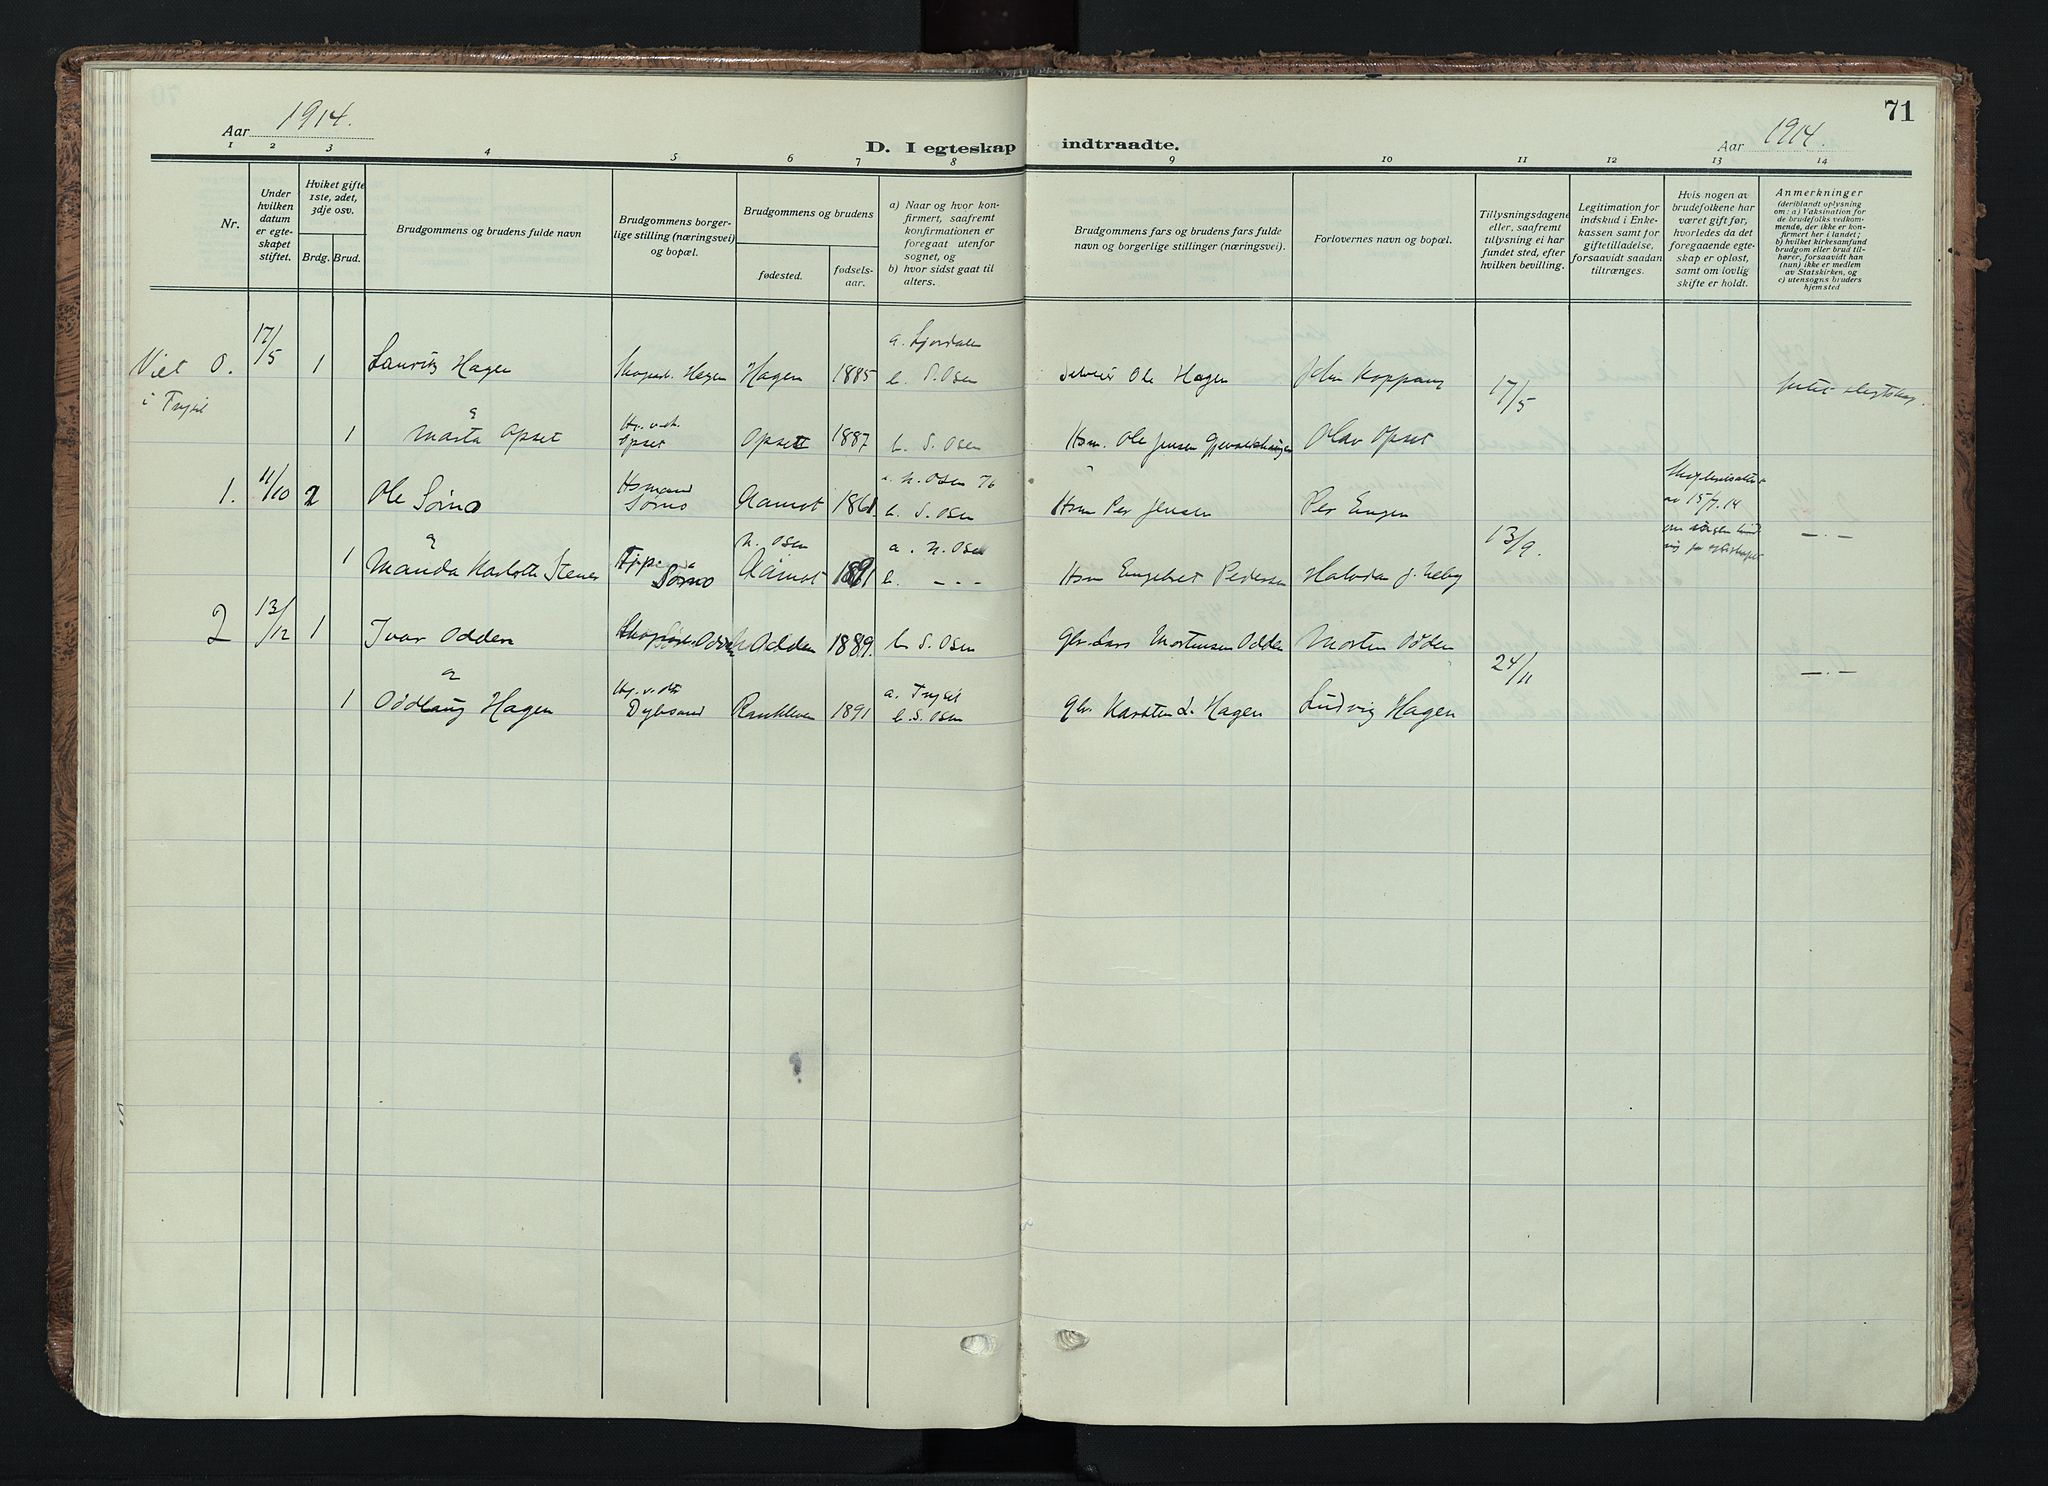 71
Aar 1914.
D. I egteskap indtraadte.
Aar 1914.
1 2 3 4 5 6 7 8 9 10 11 12 13 14
Nr.
Under hvilken datum er egteskapet stiftet.
Hviket gifte 1ste, 2det, 3dje osv.
Brdg. Brud.
Brudgommens og brudens fulde navn
Brudgommens borgerlige stilling (næringsvei) og bopæl.
Brudgommens og brudens
fødested.
fødselsaar.
a) Naar og hvor konfirmert, saafremt konfirmationen er foregaat utenfor sognet, og
b) hvor sidst gaat til alters.
Brudgommens fars og brudens fars fulde navn og borgerlige stillinger (næringsvei).
Forlovernes navn og bopæl.
Tillysningsdagene eller, saafremt tillysning ei har fundet sted, efter hvilken bevilling.
Legitimation for indskud i Enkekassen samt for giftetilladelse, forsaavidt saadan tiltrænges.
Hvis nogen av brudefolkene har været gift før, hvorledes da det foregaaende egteskap er opløst, samt om lovlig skifte er holdt.
Anmerkninger
(deriblandt oplysning om: a) Vaksination for de brudefolks vedkommende, der ikke er konfirmert her i landet; b) hvilket kirkesamfund brudgom eller brud tilhører, forsaavidt han (hun) ikke er medlem av Statskirken, og c) utensogns bruders hjemsted
Viet 0. 17/5 1 Lauritz Hagen Hagen Hagen 1885 a. Ljørdalen b. S. Osen Ole Hagen John Koppang 17/5
i Trysil
&
1 Marta Opset Opset Opsett 1887 b. S. Osen Hsm. Ole Jensen Olav Opset
1. 11/10 2 Ole Sørno Hsmand Sørno Aamot 1861. a. N. Osen 76 b. S. Osen Hsm Per Jensen Per Engen 13/9. av 15/7.14 — . —
&
1 Manda Karlotte Stener Sørno N. Osen Aamot 1891 a. N. Osen b. — . — Hsm Engebret Pedersen Halvdan J. Neby
2 13/12 1 Ivar Odden Odden Odden 1889. b. S. Osen Gbr. Lars Mortensen Odden Morten Odden 24/11 — . —
&
1 Oddlaug Hagen Dybsand Rankleven 1891 a. Trysil b. S. Osen Gbr. Karsten L. Hagen Ludvig Hagen